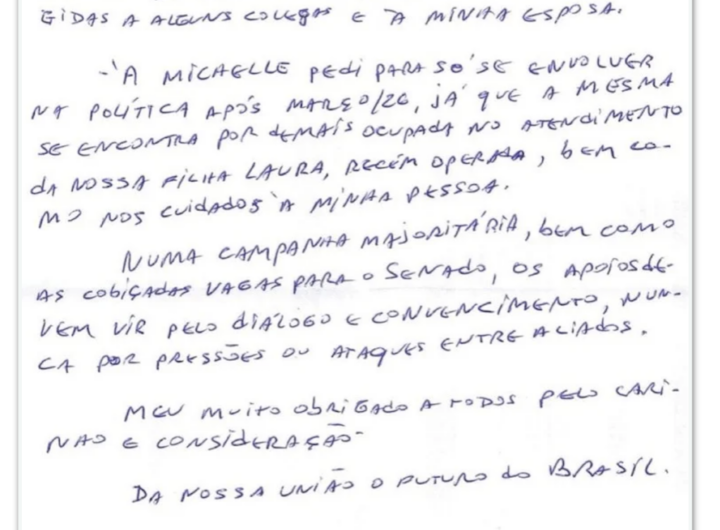 GIDAS A ALGUNS COLEGAS E À MINHA ESPOSA.
-À MICHELLE PEDI PARA SÓ SE ENVOLVER
NA POLÍTICA APÓS MARÇO/26, JÁ QUE A MESMA
SE ENCONTRA POR DEMAIS OCUPADA NO ATENDIMENTO
DA NOSSA FILHA LAURA, RECÉM OPERADA, BEM CO-
MO NOS CUIDADOS À MINHA PESSOA.
NUMA CAMPANHA MAJORITÁRIA, BEM COMO
AS COBIÇADAS VAGAS PARA O SENADO, OS APOIOS DE-
VEM VIR PELO DIÁLOGO E CONVENCIMENTO, NUN-
CA POR PRESSÕES OU ATAQUES ENTRE ALIADOS.
MEU MUITO OBRIGADO A TODOS PELO CARI-
NHO E CONSIDERAÇÃO-
DA NOSSA UNIÃO O FUTURO DO BRASIL.